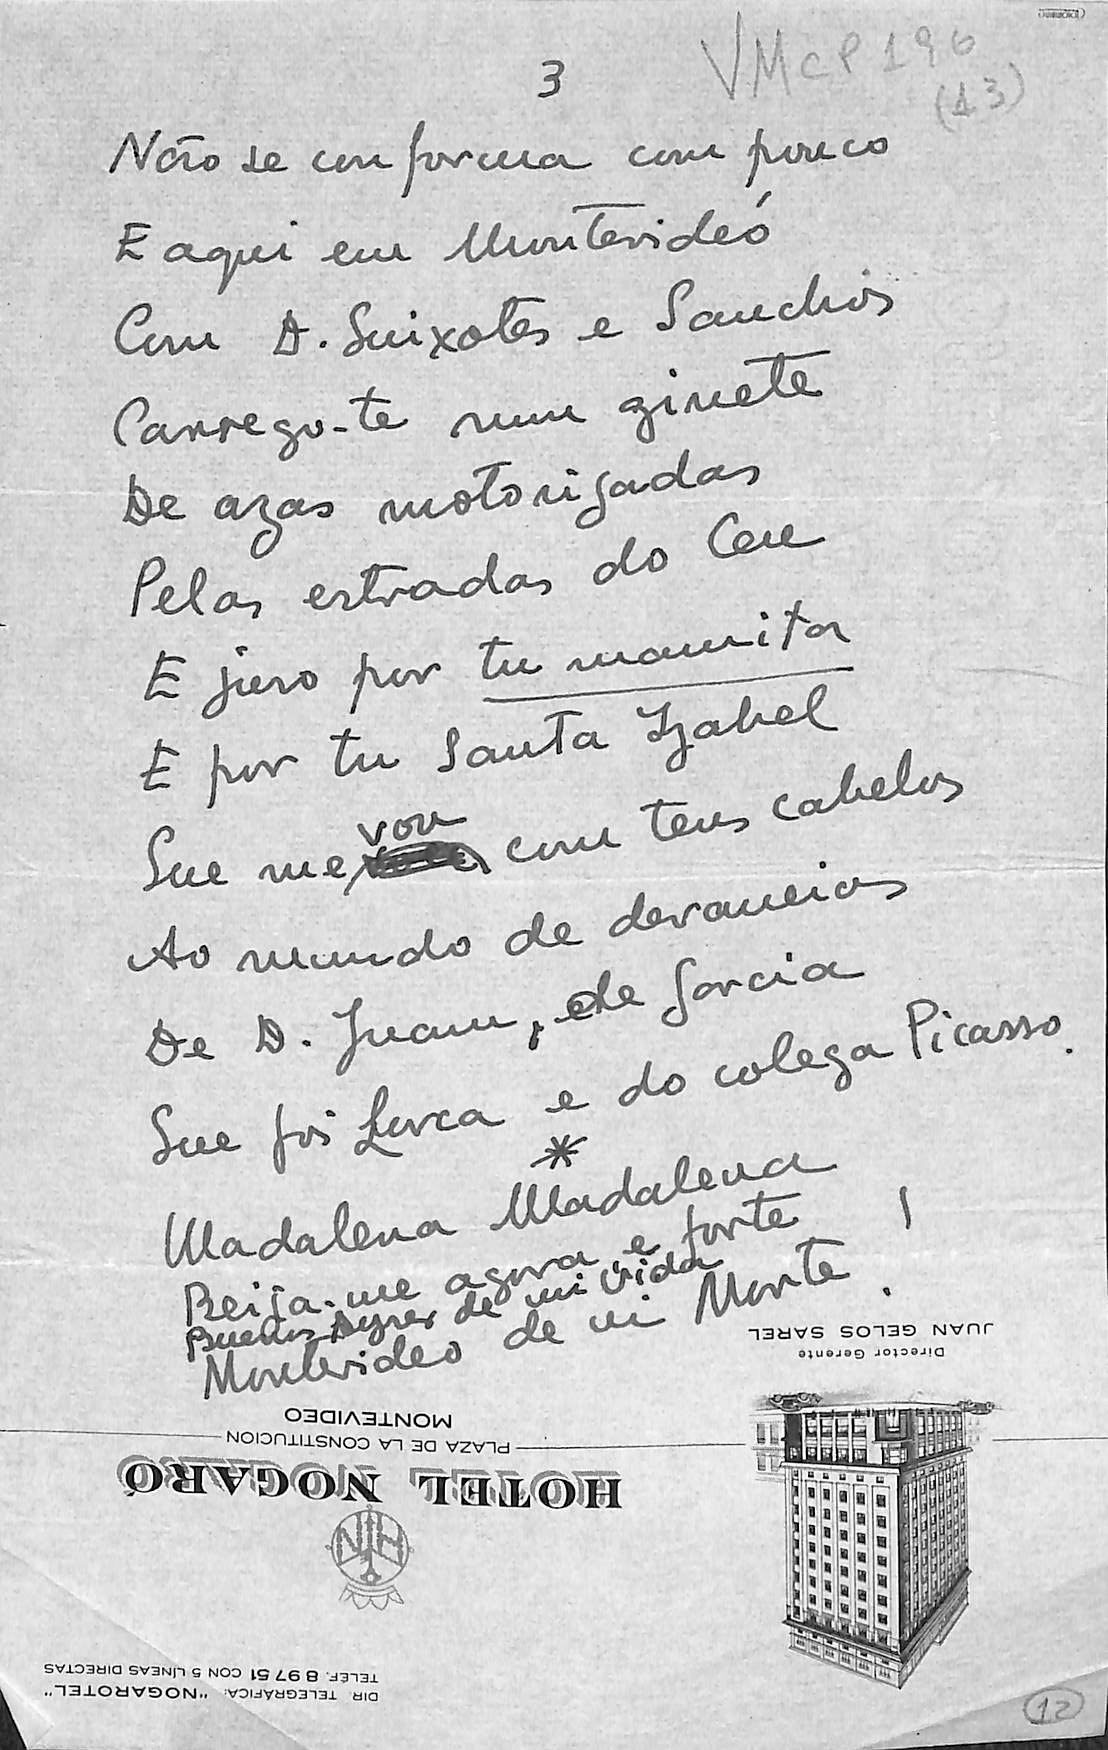 VMCP196
(13)
3
Não se conforma com pouco
E aqui em Montevideó
Com D. Quixotes e Sanchos
Carrego-te num ginete
De azas motorizadas
Pelas estradas do Ceu
E juro por tu mamita
E por tu Santa Izabel
Que me vou com teus cabelos
Ao mundo de devaneios
De D. Juan, de Garcia
Que foi Lorca e do colega Picasso.
*
Madalena Madalena
Beija-me agora, e forte !
Buenos Ayres de mi vida
Montevideo de mi Morte.
JUAN GELOS SAREL
Director Gerente
MONTEVIDEO
PLAZA DE LA CONSTITUCION
HOTEL NOGARÓ
TELÉF. 8 97 51 CON 5 LÍNEAS DIRECTAS
DIR. TELEGRÁFICA: "NOGAROTEL"
12